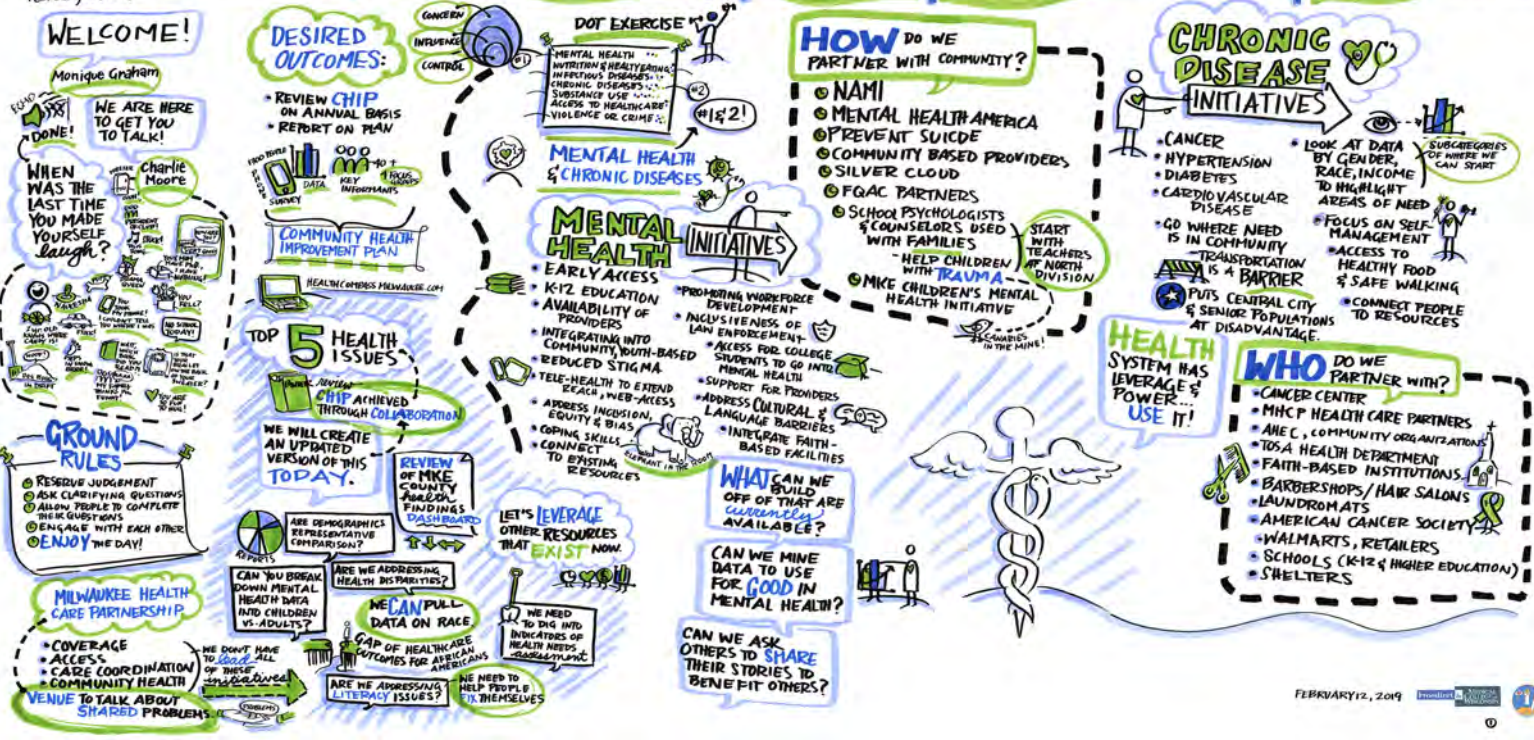 WELCOME!
Monique Graham
DONE!
WE ARE HERE
TO GET YOU
TO TALK!
WHEN
WAS THE
LAST TIME
YOU MADE
YOURSELF
laugh?
Charlie
Moore
NO SCHOOL
TODAY!
GROUND
RULES
RESERVE JUDGEMENT
ASK CLARIFYING QUESTIONS
ALLOW PEOPLE TO COMPLETE
THEIR QUESTIONS
ENGAGE WITH EACH OTHER
ENJOY THE DAY!
MILWAUKEE HEALTH
CARE PARTNERSHIP
• COVERAGE
• ACCESS
• CARE COORDINATION
• COMMUNITY HEALTH
WE DON'T HAVE
TO lead ALL
OF THESE
initiatives!
VENUE TO TALK ABOUT
SHARED PROBLEMS.
PROBLEMS
DESIRED
OUTCOMES:
• REVIEW CHIP
ON ANNUAL BASIS
• REPORT ON PLAN
SURVEY
DATA
KEY
INFORMANTS
FOCUS
GROUPS
COMMUNITY HEALTH
IMPROVEMENT PLAN
HEALTHCOMPASS MILWAUKEE.COM
TOP 5 HEALTH
ISSUES
review
CHIP ACHIEVED
THROUGH COLLABORATION
WE WILL CREATE
AN UPDATED
VERSION OF THIS
TODAY.
REVIEW
OF MKE
COUNTY
health
FINDINGS
DASHBOARD
REPORTS
ARE DEMOGRAPHICS
REPRESENTATIVE
COMPARISON?
CAN YOU BREAK
DOWN MENTAL
HEALTH DATA
INTO CHILDREN
VS. ADULTS?
ARE WE ADDRESSING
HEALTH DISPARITIES?
WE CAN PULL
DATA ON RACE.
GAP OF HEALTHCARE
OUTCOMES FOR AFRICAN
AMERICANS
ARE WE ADDRESSING
LITERACY ISSUES?
WE NEED TO
HELP PEOPLE
FIX THEMSELVES
CONCERN
INFLUENCE
CONTROL
DOT EXERCISE
MENTAL HEALTH
NUTRITION & HEALTY EATING
INFECTIOUS DISEASES
CHRONIC DISEASES
SUBSTANCE USE
ACCESS TO HEALTHCARE
VIOLENCE OR CRIME
#1
#2
#1 & 2!
MENTAL HEALTH
& CHRONIC DISEASES
MENTAL
HEALTH
INITIATIVES
• EARLY ACCESS
• K-12 EDUCATION
• AVAILABILITY OF
PROVIDERS
• INTEGRATING INTO
COMMUNITY, YOUTH-BASED
• REDUCED STIGMA
• TELE-HEALTH TO EXTEND
REACH, WEB-ACCESS
• ADDRESS INCLUSION,
EQUITY & BIAS
• COPING SKILLS
• CONNECT
TO EXISTING
RESOURCES
ELEPHANT IN THE ROOM
• PROMOTING WORKFORCE
DEVELOPMENT
• INCLUSIVENESS OF
LAW ENFORCEMENT
• ACCESS FOR COLLEGE
STUDENTS TO GO INTO
MENTAL HEALTH
• SUPPORT FOR PROVIDERS
• ADDRESS CULTURAL &
LANGUAGE BARRIERS
• INTEGRATE FAITH-
BASED FACILITIES
LET'S LEVERAGE
OTHER RESOURCES
THAT EXIST NOW.
WE NEED
TO DIG INTO
INDICATORS OF
HEALTH NEEDS
assessment
WHAT CAN WE
BUILD
OFF OF THAT ARE
currently
AVAILABLE?
CAN WE MINE
DATA TO USE
FOR GOOD IN
MENTAL HEALTH?
CAN WE ASK
OTHERS TO SHARE
THEIR STORIES TO
BENEFIT OTHERS?
HOW DO WE
PARTNER WITH COMMUNITY?
NAMI
MENTAL HEALTH AMERICA
PREVENT SUICDE
COMMUNITY BASED PROVIDERS
SILVER CLOUD
FQAC PARTNERS
SCHOOL PSYCHOLOGISTS
& COUNSELORS USED
WITH FAMILIES
- HELP CHILDREN
WITH TRAUMA
MKE CHILDREN'S MENTAL
HEALTH INITIATIVE
START
WITH
TEACHERS
AT NORTH
DIVISION
CANARIES
IN THE MINE!
CHRONIC
DISEASE
INITIATIVES
• CANCER
• HYPERTENSION
• DIABETES
• CARDIOVASCULAR
DISEASE
• GO WHERE NEED
IS IN COMMUNITY
- TRANSPORTATION
IS A BARRIER
PUTS CENTRAL CITY
& SENIOR POPULATIONS
AT DISADVANTAGE.
• LOOK AT DATA
BY GENDER,
RACE, INCOME
TO HIGHLIGHT
AREAS OF NEED
SUBCATEGORIES
OF WHERE WE
CAN START
• FOCUS ON SELF-
MANAGEMENT
• ACCESS TO
HEALTHY FOOD
& SAFE WALKING
• CONNECT PEOPLE
TO RESOURCES
HEALTH
SYSTEM HAS
LEVERAGE &
POWER...
USE IT!
WHO DO WE
PARTNER WITH?
• CANCER CENTER
• MHCP HEALTH CARE PARTNERS
• AHEC, COMMUNITY ORGANIZATIONS
• TOSA HEALTH DEPARTMENT
• FAITH-BASED INSTITUTIONS
• BARBERSHOPS/HAIR SALONS
• LAUNDROMATS
• AMERICAN CANCER SOCIETY
• WALMARTS, RETAILERS
• SCHOOLS (K-12 & HIGHER EDUCATION)
• SHELTERS
FEBRUARY 12, 2019
Froedtert &